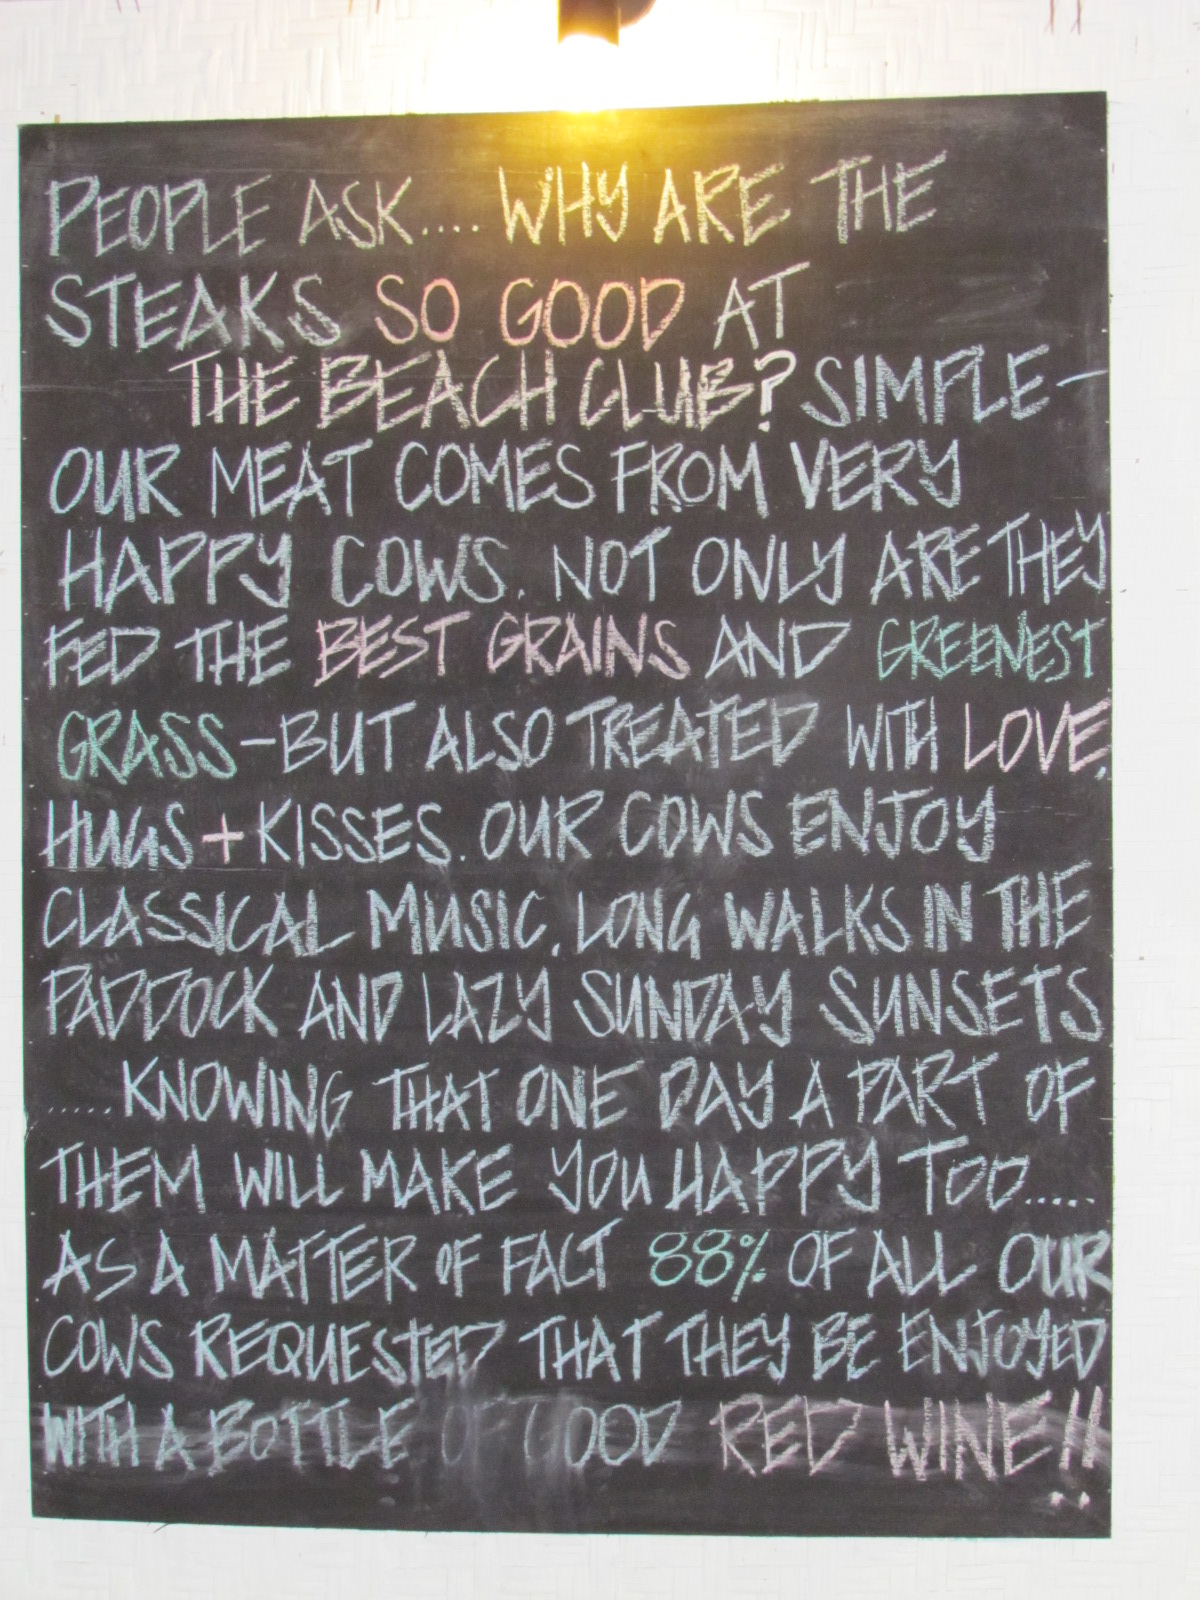 PEOPLE ASK.... WHY ARE THE
STEAKS SO GOOD AT
THE BEACH CLUB? SIMPLE-
OUR MEAT COMES FROM VERY
HAPPY COWS. NOT ONLY ARE THEY
FED THE BEST GRAINS AND GREENEST
GRASS-BUT ALSO TREATED WITH LOVE,
HUGS + KISSES. OUR COWS ENJOY
CLASSICAL MUSIC, LONG WALKS IN THE
PADDOCK AND LAZY SUNDAY SUNSETS
.....KNOWING THAT ONE DAY A PART OF
THEM WILL MAKE YOU HAPPY TOO.....
AS A MATTER OF FACT 88% OF ALL OUR
COWS REQUESTED THAT THEY BE ENJOYED
WITH A BOTTLE OF GOOD RED WINE!!